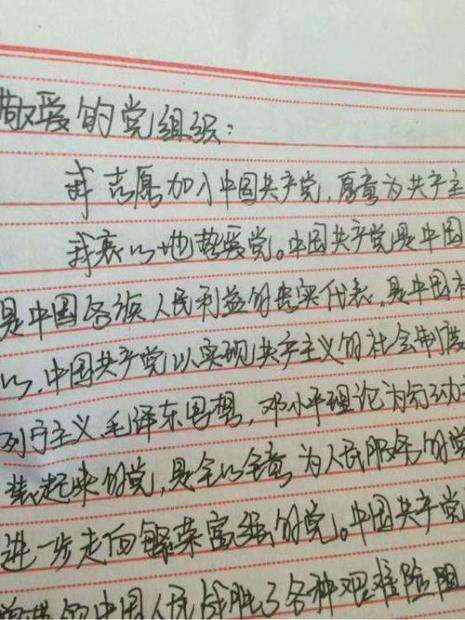 敬爱的党组织:
我志愿加入中国共产党,愿意为共产主
我衷心地热爱党。中国共产党是中国
是中国各族人民利益的忠实代表,是中国社
心,中国共产党以实现共产主义的社会制度
列宁主义、毛泽东思想,邓小平理论为行动
装起来的党,是全心全意为人民服务的党
进一步走向繁荣富强的党。中国共产党
的中国人民战胜了各种艰难险阻